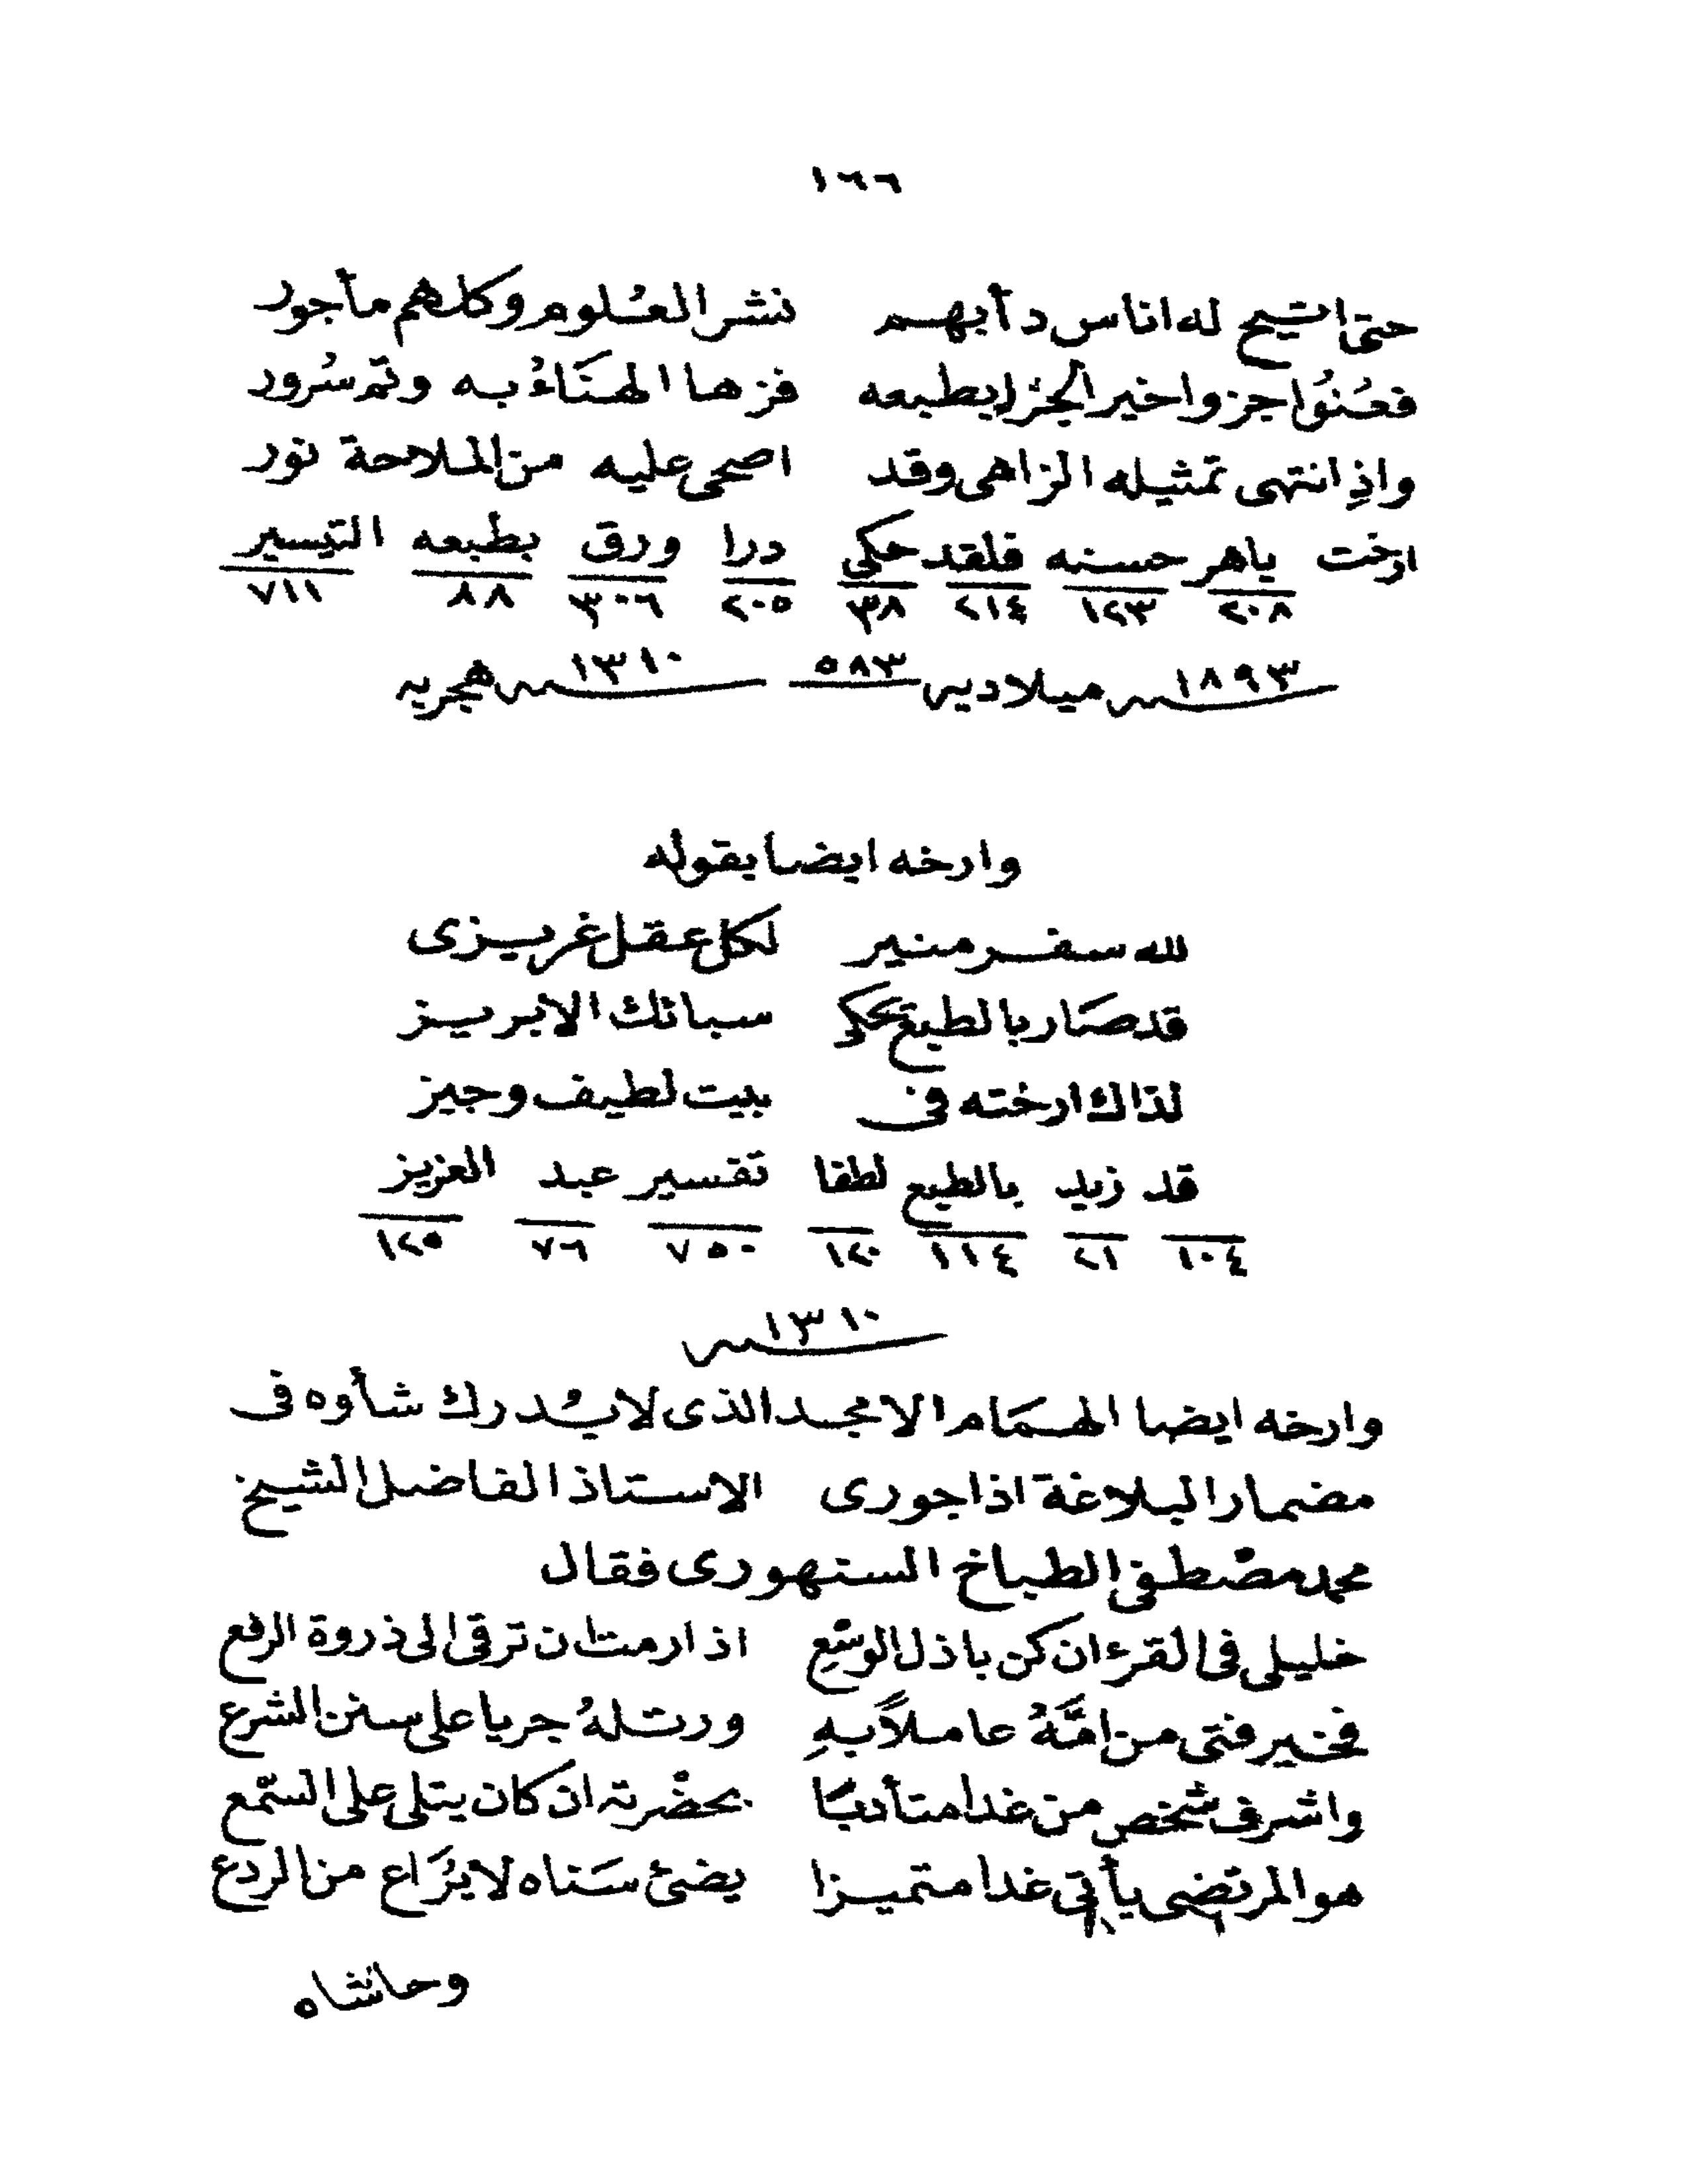 ١٦٦
حتى اتيح له اناس دأبهم نشر العُلوم وكلهم مأجور
فعُنُوا جزوا خير الجزا بطبعه فزها الهَنَاءُ به وتم سُرور
واذ انتهى تمثيله الزاهى وقد اضحى عليه من الملاحة نور
ارخت باهر حسنه فلقد حكي درا ورق بطبعه التيسير
٢٠٨ ١٢٣ ٢١٤ ٣٨ ٢٠٥ ٣٠٦ ٨٨ ٧١١
١٨٩٣ ميلاديه ٥٨٣ ١٣١٠ هجريه
وارخه ايضا بقوله
لله سفر منير لكل عقل غريزى
قد صَار بالطبع يحكى سبائك الابريز
لذاك ارخته فى ببيت لطيف وجيز
قد زيد بالطبع لطفا تفسير عبد العزيز
١٠٤ ٢١ ١١٤ ١٢٠ ٧٥٠ ٧٦ ١٢٥
١٣١٠
وارخه ايضا الهمَام الامجد الذى لا يُدرك شأوه فى
مضمار البلاغة اذا جورى الاستاذ الفاضل الشيخ
محمد مصْطفى الطباخ السنهورى فقال
خليلى فى القرءان كن باذل الوسْعِ اذا رمت ان ترقى الى ذروة الرفع
فخير فتى من امَّهُ عاملاً بهِ ورتلهُ جريا على سنن الشرع
واشرف شخص من غدا متأدبًا بحضْرته ان كان يتلى على السّمع
هو المرتضى يأتى غدا متميزا يضئ سَناه لا يُرَاع من الردع
وحاشاه